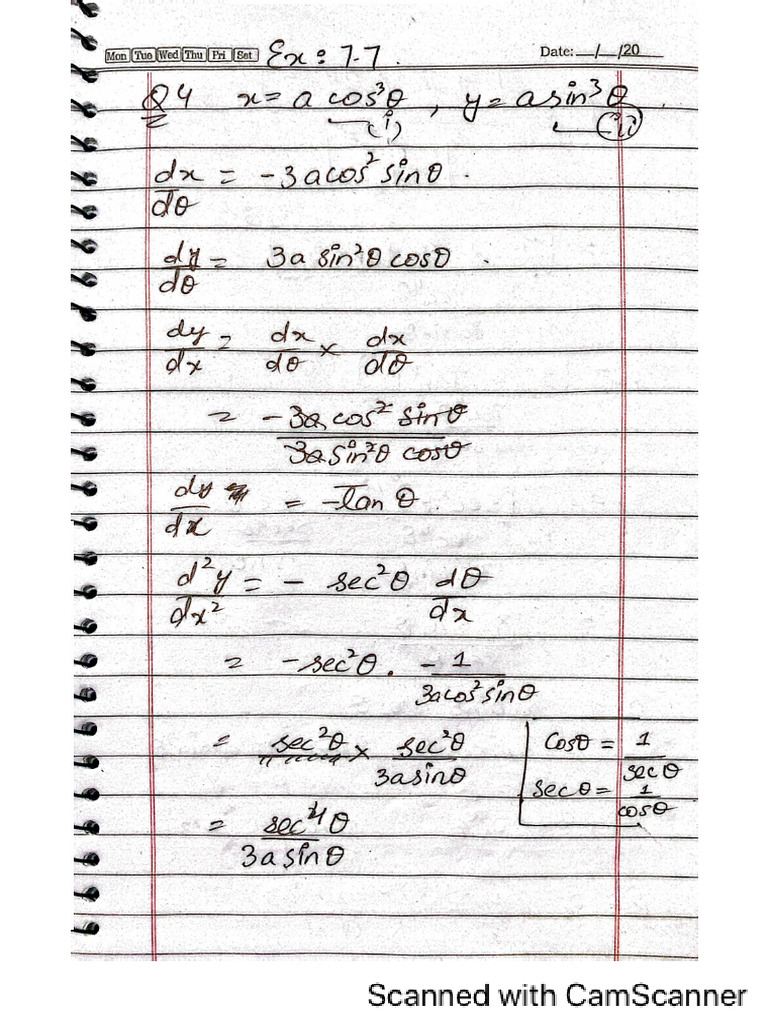 Mon Tue Wed Thu Fri Sat Ex: 7.7. Date: __/__/20__
Q4 x = a cos³θ , y = a sin³θ .
(i) (ii)
dx/dθ = -3acos² sinθ .
dy/dθ = 3a sin²θ cosθ .
dy/dx = dx/dθ × dx/dθ
= -3a cos² sinθ / 3a sin²θ cosθ
dy/dx = -tan θ .
d²y/dx² = - sec²θ dθ/dx
= -sec²θ . -1/3acos²sinθ
= sec²θ × sec²θ/3asinθ
cosθ = 1/secθ
secθ = 1/cosθ
= sec⁴θ/3a sinθ
Scanned with CamScanner